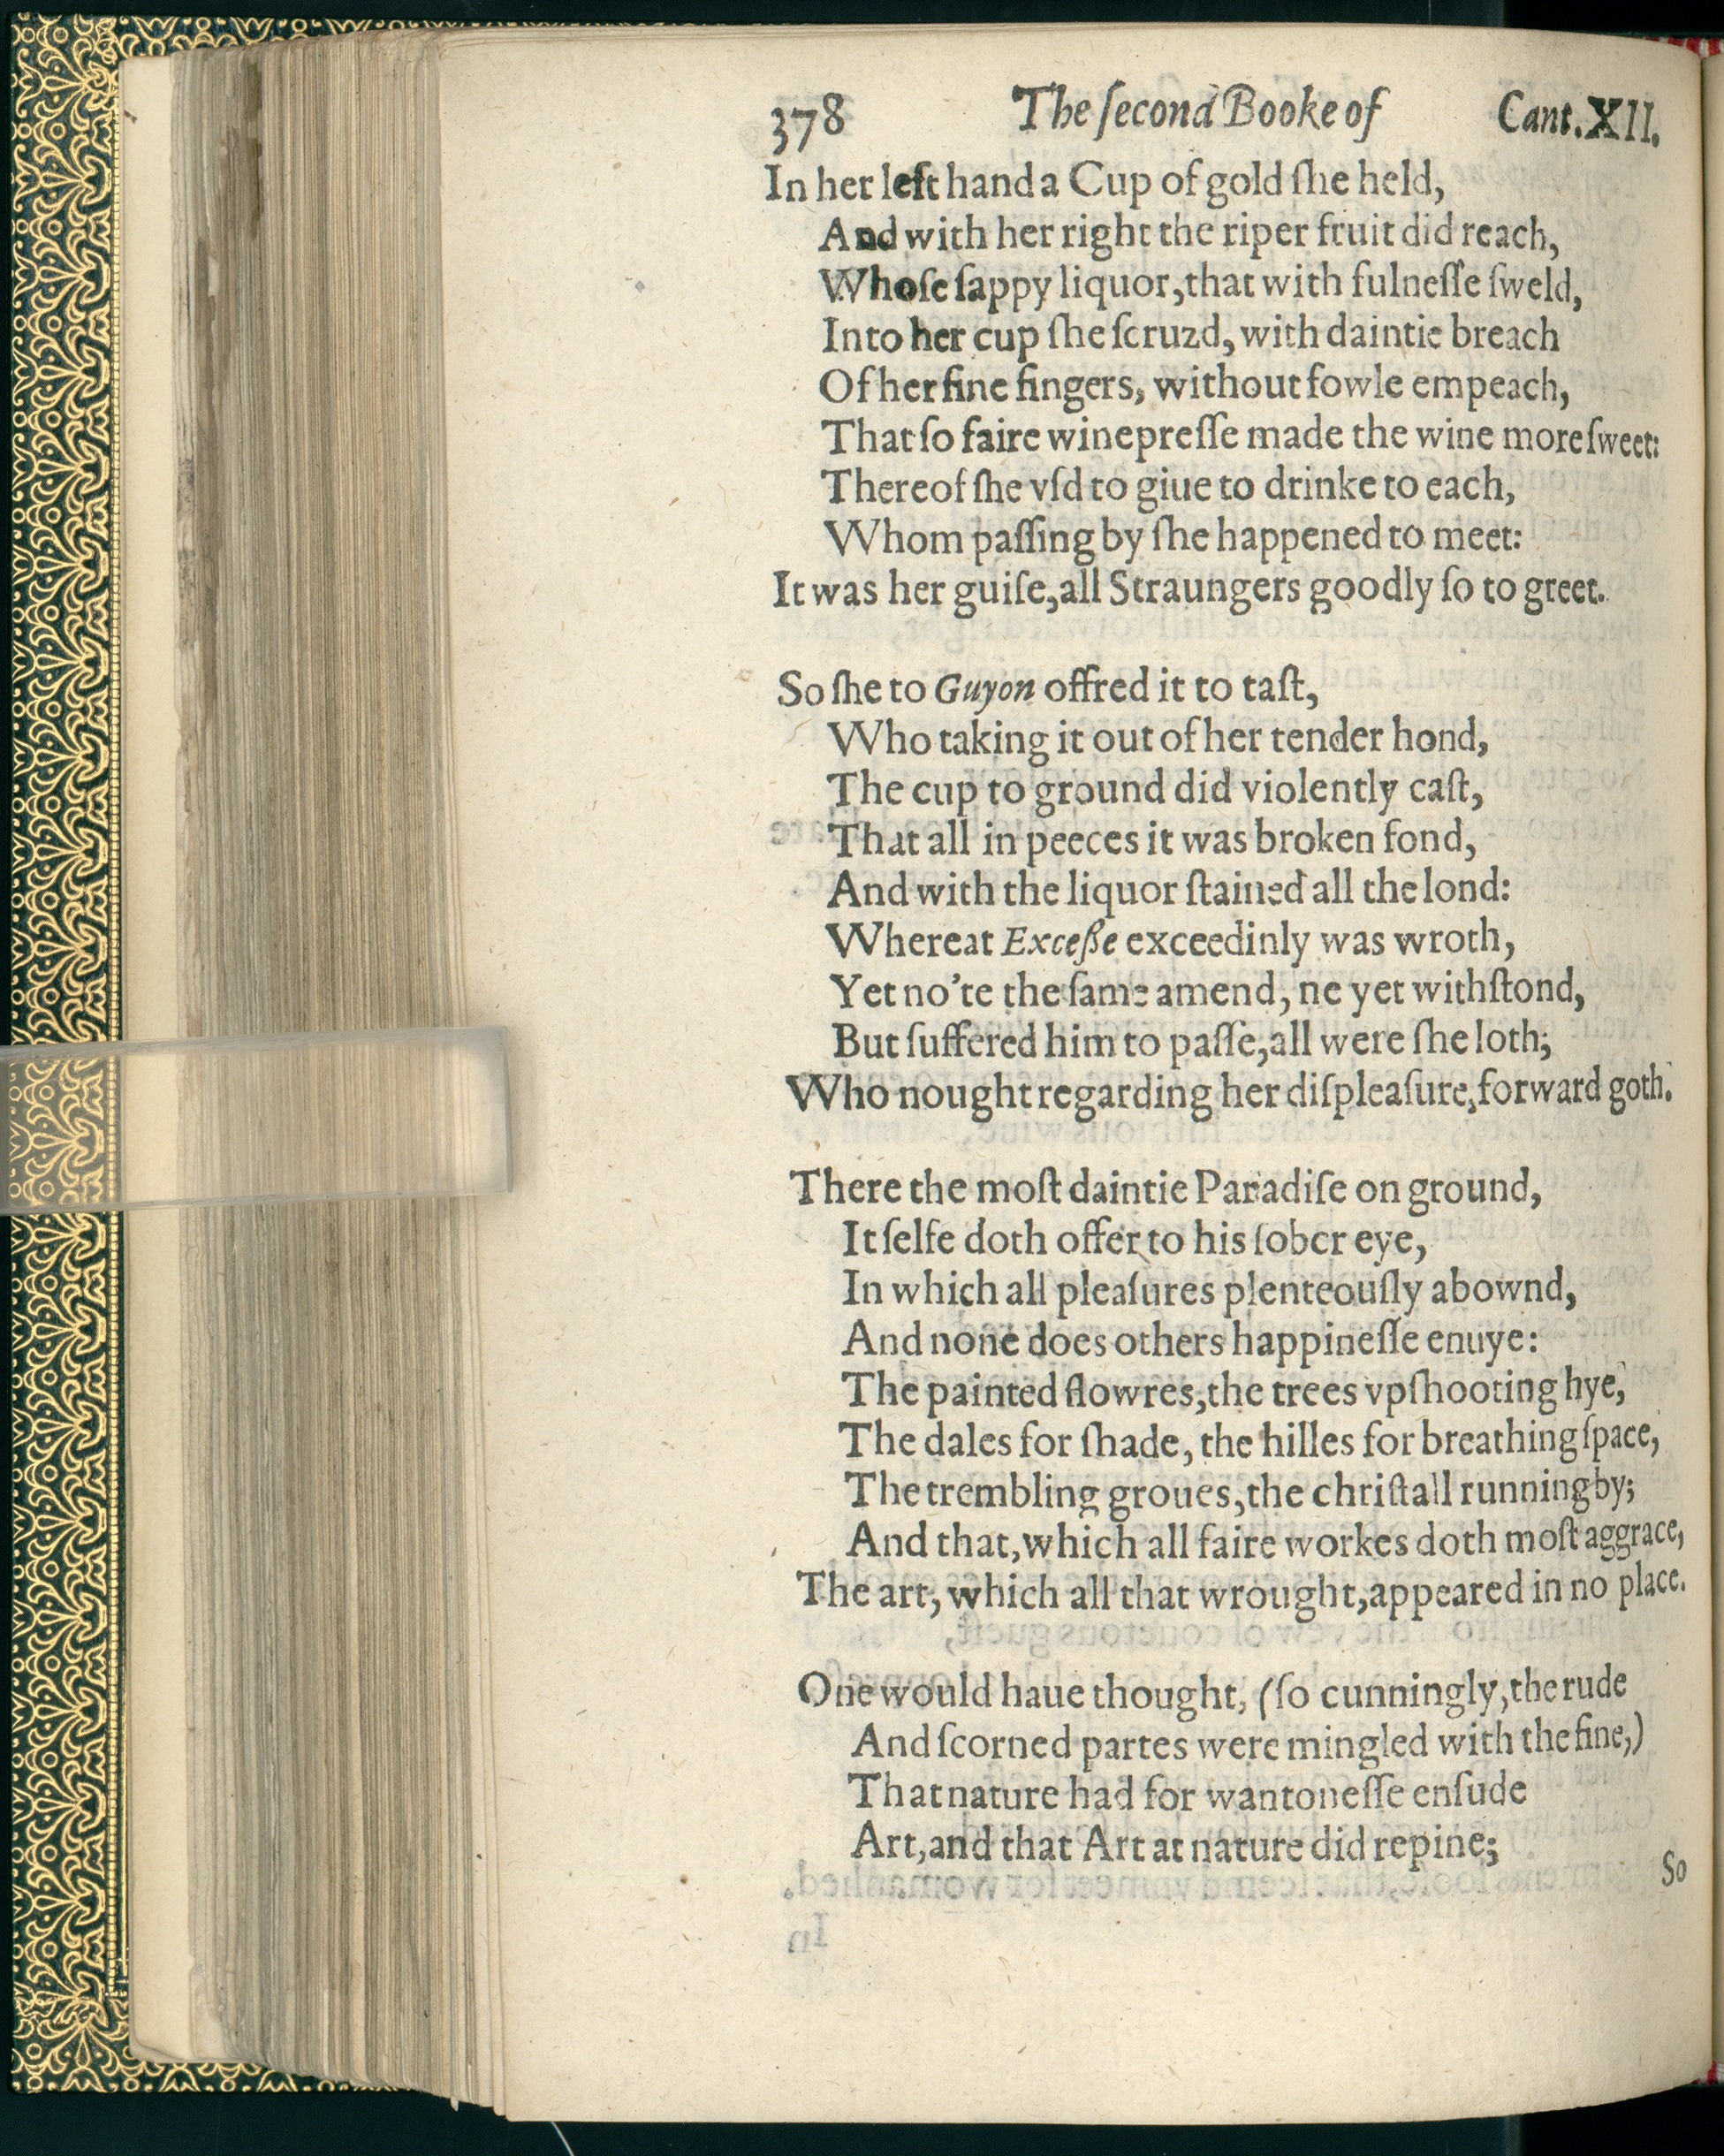 378 The ſecond Booke of Cant. XII.
In her left hand a Cup of gold ſhe held,
And with her right the riper fruit did reach,
Whoſe ſappy liquor, that with fulneſſe ſweld,
Into her cup ſhe ſcruzd, with daintie breach
Of her fine fingers, without fowle empeach,
That ſo faire winepreſſe made the wine more ſweet:
Thereof ſhe vſd to giue to drinke to each,
Whom paſſing by ſhe happened to meet:
It was her guiſe, all Straungers goodly ſo to greet.
So ſhe to Guyon offred it to taſt,
Who taking it out of her tender hond,
The cup to ground did violently caſt,
That all in peeces it was broken fond,
And with the liquor ſtained all the lond:
Whereat Exceße exceedinly was wroth,
Yet no'te the ſame amend, ne yet withſtond,
But ſuffered him to paſſe, all were ſhe loth;
Who nought regarding her diſpleaſure, forward goth.
There the moſt daintie Paradiſe on ground,
It ſelfe doth offer to his ſober eye,
In which all pleaſures plenteouſly abownd,
And none does others happineſſe enuye:
The painted flowres, the trees vpſhooting hye,
The dales for ſhade, the hilles for breathing ſpace,
The trembling groues, the chriſtall running by;
And that, which all faire workes doth moſt aggrace,
The art, which all that wrought, appeared in no place.
One would haue thought, (ſo cunningly, the rude
And ſcorned partes were mingled with the fine,)
That nature had for wantoneſſe enſude
Art, and that Art at nature did repine;
So